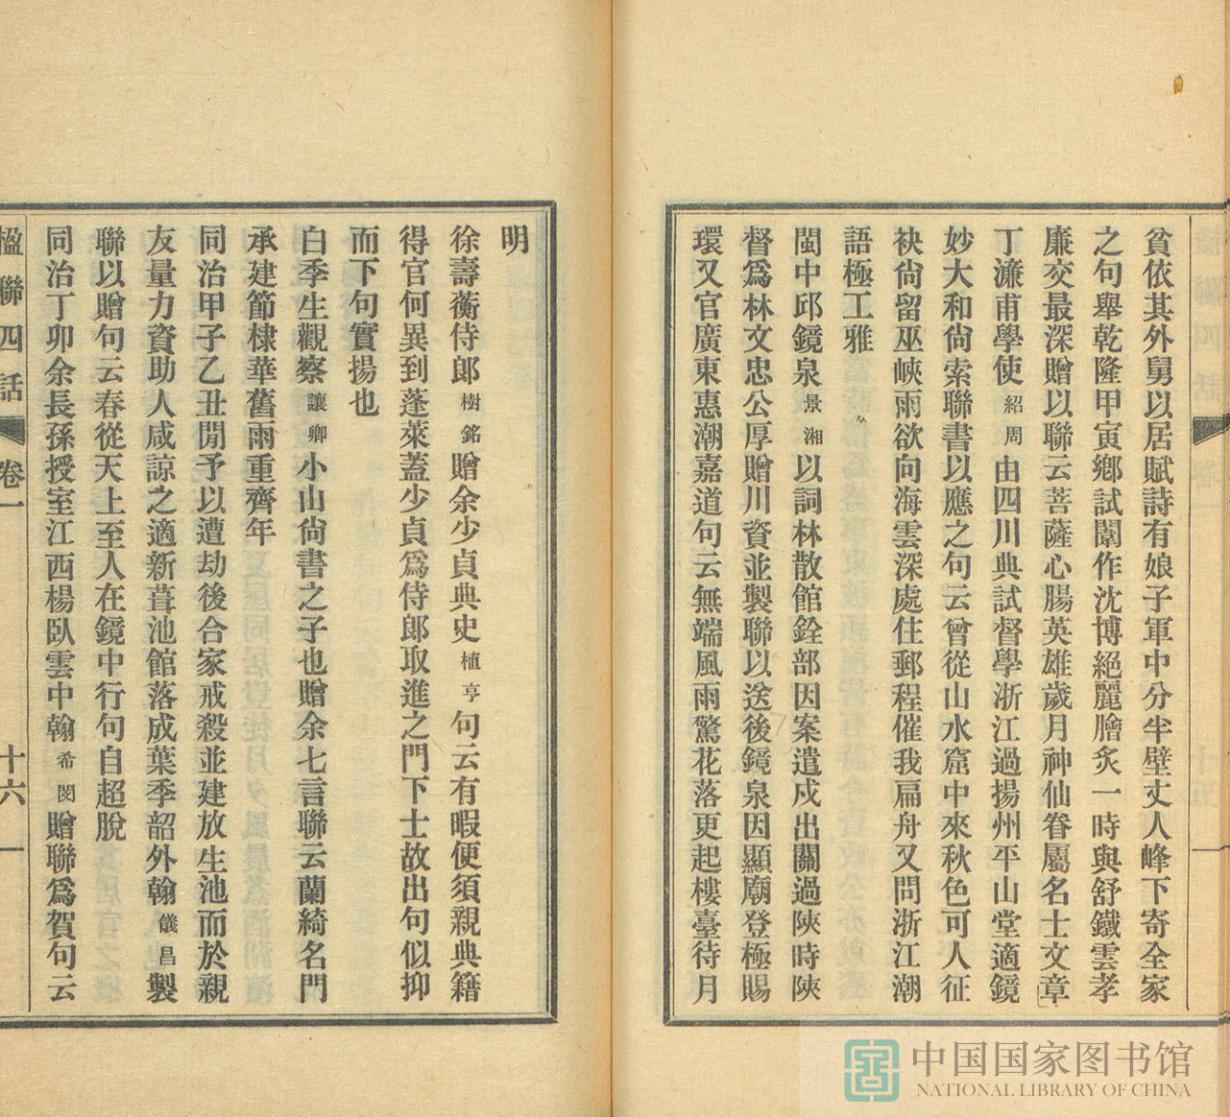 貧依其外舅以居賦詩有娘子軍中分半壁丈人峰下寄全家
之句舉乾隆甲寅鄉試闈作沈博絕麗膾炙一時與舒鐵雲孝
廉交最深贈以聯云菩薩心腸英雄歲月神仙眷屬名士文章
丁濂甫學使紹周由四川典試督學浙江過揚州平山堂適鏡
妙大和尙索聯書以應之句云曾從山水窟中來秋色可人征
袂尙留巫峽雨欲向海雲深處住郵程催我扁舟又問浙江潮
語極工雅
閩中邱鏡泉景湘以詞林散館銓部因案遣戍出關過陝時陝
督爲林文忠公厚贈川資並製聯以送後鏡泉因顯廟登極賜
環又官廣東惠潮嘉道句云無端風雨驚花落更起樓臺待月
明
徐壽蘅侍郎樹銘贈余少貞典史植亨句云有暇便須親典籍
得官何異到蓬萊蓋少貞爲侍郎取進之門下士故出句似抑
而下句實揚也
白季生觀察讓卿小山尙書之子也贈余七言聯云蘭綺名門
承建節棣華舊雨重齊年
同治甲子乙丑閒予以遭劫後合家戒殺並建放生池而於親
友量力資助人咸諒之適新葺池館落成葉季韶外翰儀昌製
聯以贈句云春從天上至人在鏡中行句自超脫
同治丁卯余長孫授室江西楊臥雲中翰希閔贈聯爲賀句云
楹聯四話 卷一 十六
中国国家图书馆
NATIONAL LIBRARY OF CHINA